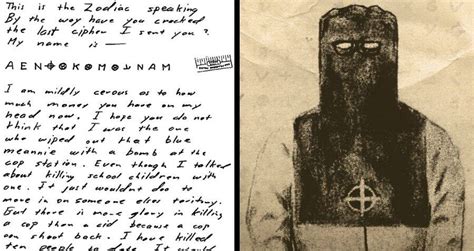 This is the Zodiac speaking
By the way have you cracked
the last cipher I sent you?
My name is —
A E N ⊕ ⊗ K ⊗ M ⊗ ⌋ N A M
I am mildly cerous as to how
much money you have on my
head now. I hope you do not
think that I was the one
who wiped out that blue
meannie with a bomb at the
cop station. Even though I talked
about killing school children with
one. It just wouldnt doo to
move in on someone elses teritory.
But there is more glory in killing
a cop than a cid because a cop
can shoot back. I have killed
ten people to date. It would